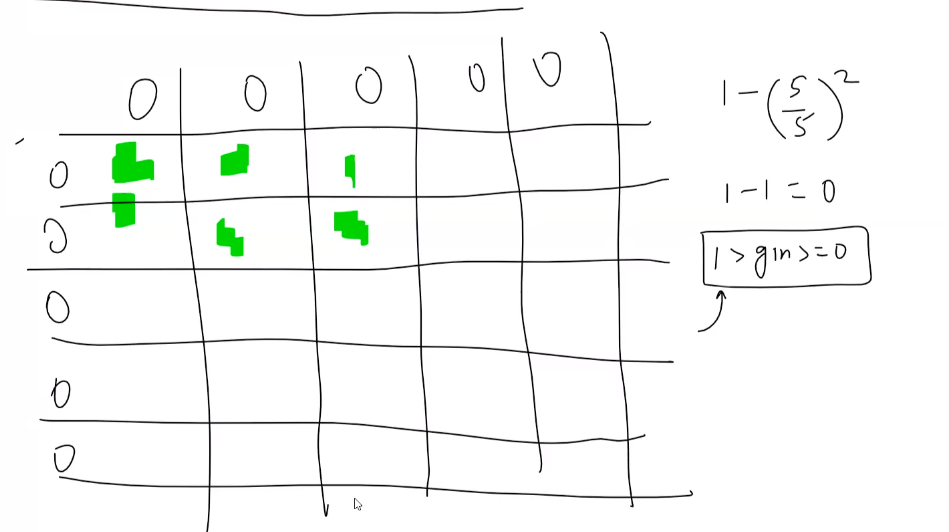 0 0 0 0 0
0
0
0
0
0
1 - (5/5)²
1 - 1 = 0
1 > gin >= 0